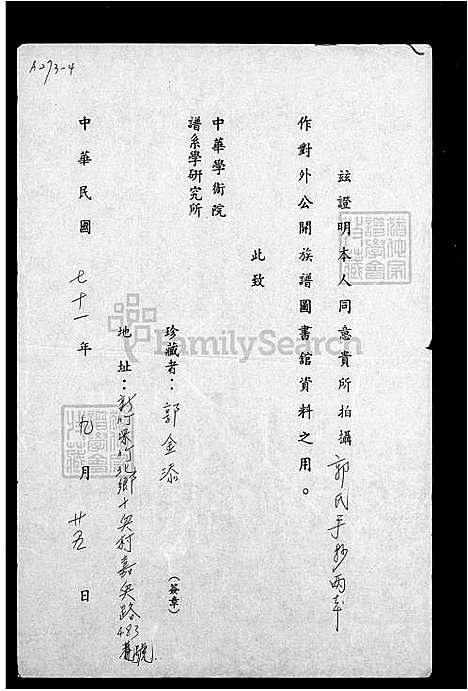 A273-4
茲證明本人同意貴所拍攝郭氏手抄兩本
作對外公開族譜圖書舘資料之用。
此致
中華學術院
譜系學研究所
珍藏者：郭金添
（簽章）
地址：新竹縣竹北鄉十興村嘉興路483號
中華民國七十一年九月廿五日
FamilySearch